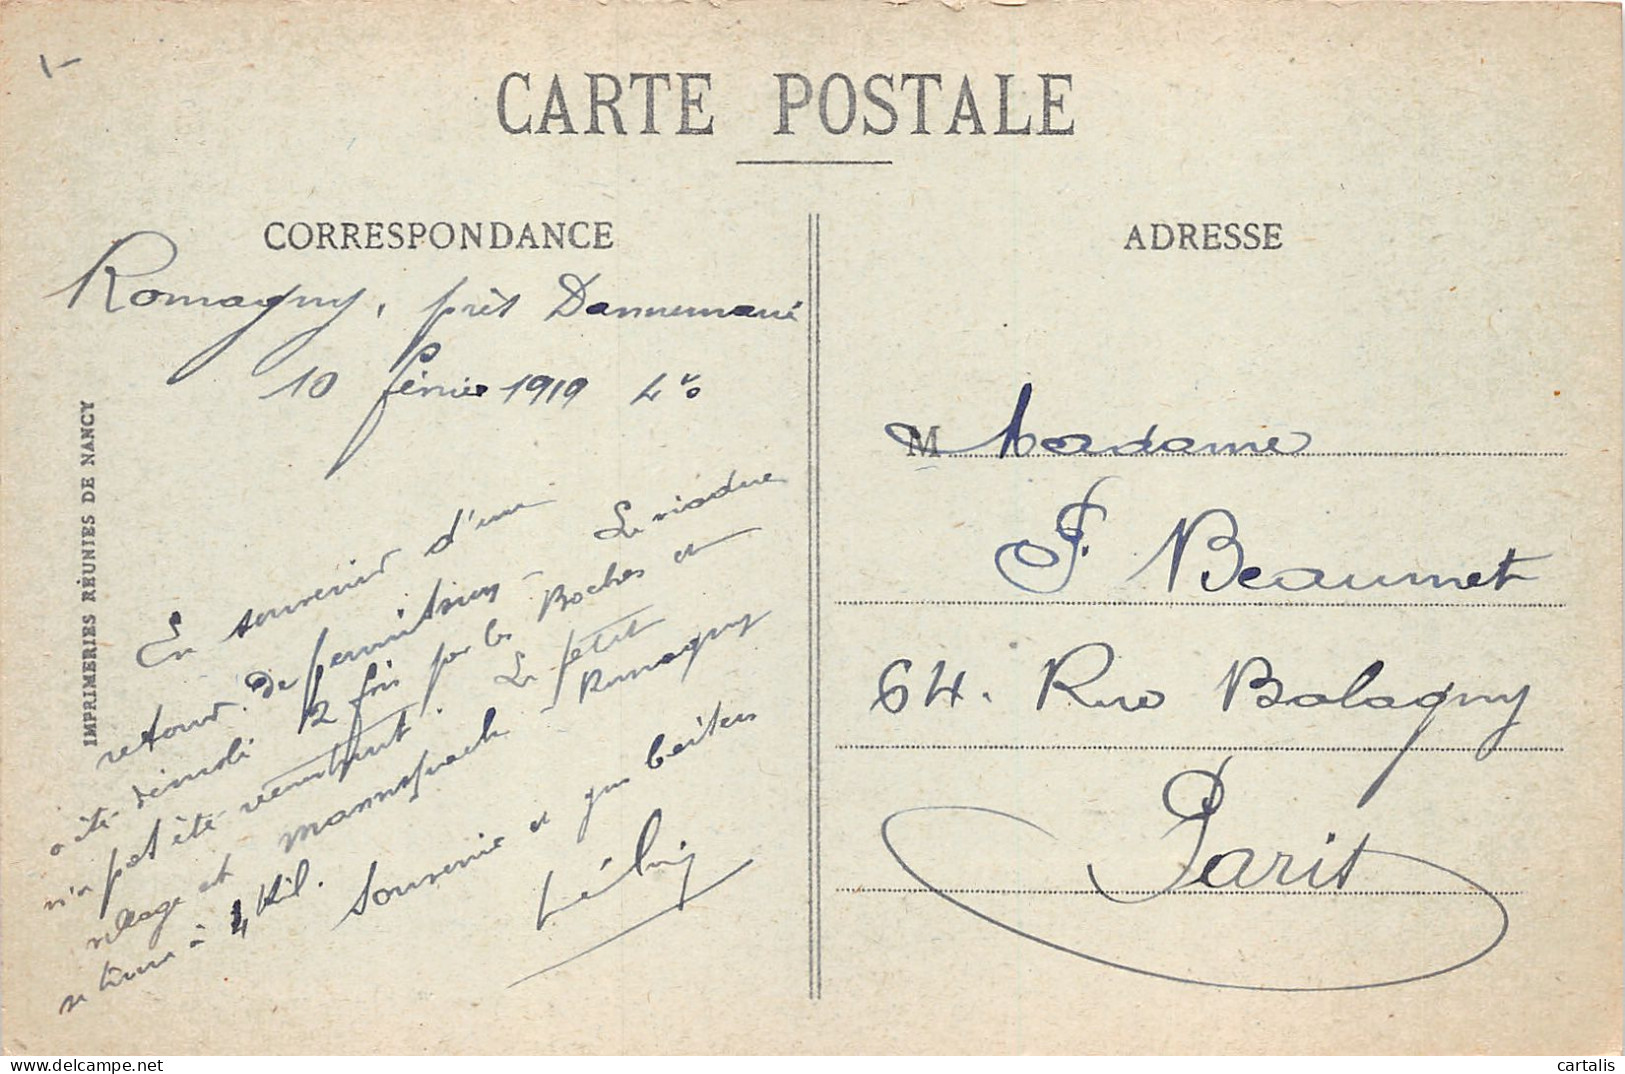 CARTE POSTALE
CORRESPONDANCE
Romagny, près Dannemarie
10 février 1919
En souvenir d'une
retour de permission - Le viaduc
a été démoli 2 fois par les Boches et
n'a pas été reconstruit. Le petit
village et Mannspach - Romagny
se trouve à 4 Kil.
Souvenir et gros baisers
IMPRIMERIES RÉUNIES DE NANCY
ADRESSE
M Madame
F. Beaumet
64. Rue Balagny
Paris
cartalis